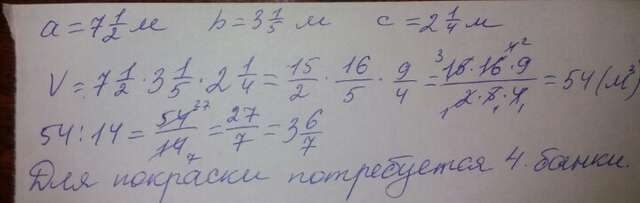 a = 7 1/2 м   b = 3 1/5 м   c = 2 1/4 м
V = 7 1/2 · 3 1/5 · 2 1/4 = 15/2 · 16/5 · 9/4 = 15·16·9/2·5·4 = 54 (м³)
54 : 14 = 54/14 = 27/7 = 3 6/7
Для покраски потребуется 4 банки.